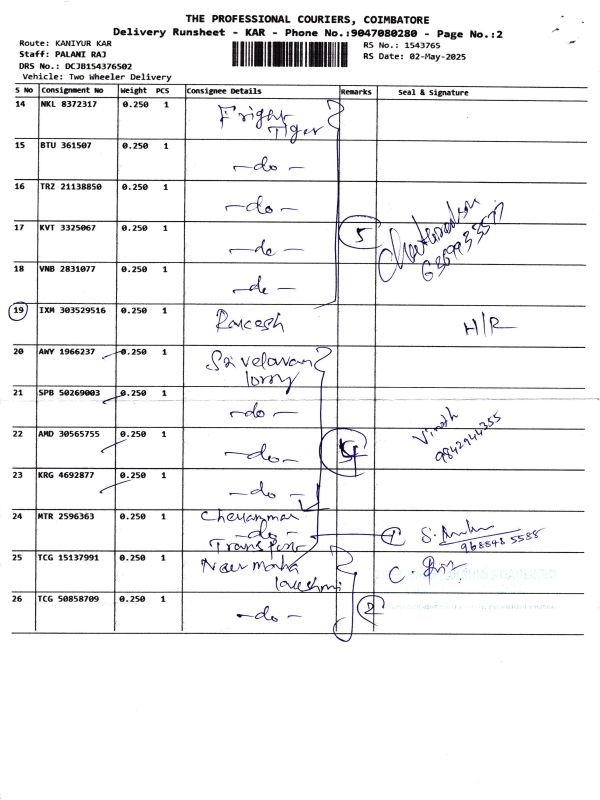 THE PROFESSIONAL COURIERS, COIMBATORE
Delivery Runsheet - KAR - Phone No.:9047080280 - Page No.:2
Route: KANIYUR KAR
RS No.: 1543765
Staff: PALANI RAJ
RS Date: 02-May-2025
DRS No.: DCJB154376502
Vehicle: Two Wheeler Delivery
S No Consignment No Weight PCS Consignee Details Remarks Seal & Signature
14 NKL 8372317 0.250 1 Fright
Tiger
15 BTU 361507 0.250 1 -do-
16 TRZ 21138850 0.250 1 -do-
17 KVT 3325067 0.250 1 -do- 5
18 VNB 2831077 0.250 1 -do-
19 IXM 303529516 0.250 1 Rakesh H/R
20 AWY 1966237 0.250 1 Sri velavan
lorry
21 SPB 50269003 0.250 1 -do-
22 AMD 30565755 0.250 1 -do- Vinoth
9842944355
23 KRG 4692877 0.250 1 -do-
24 MTR 2596363 0.250 1 -do- 1
Transport
25 TCG 15137991 0.250 1
26 TCG 50858709 0.250 1 -do- 2